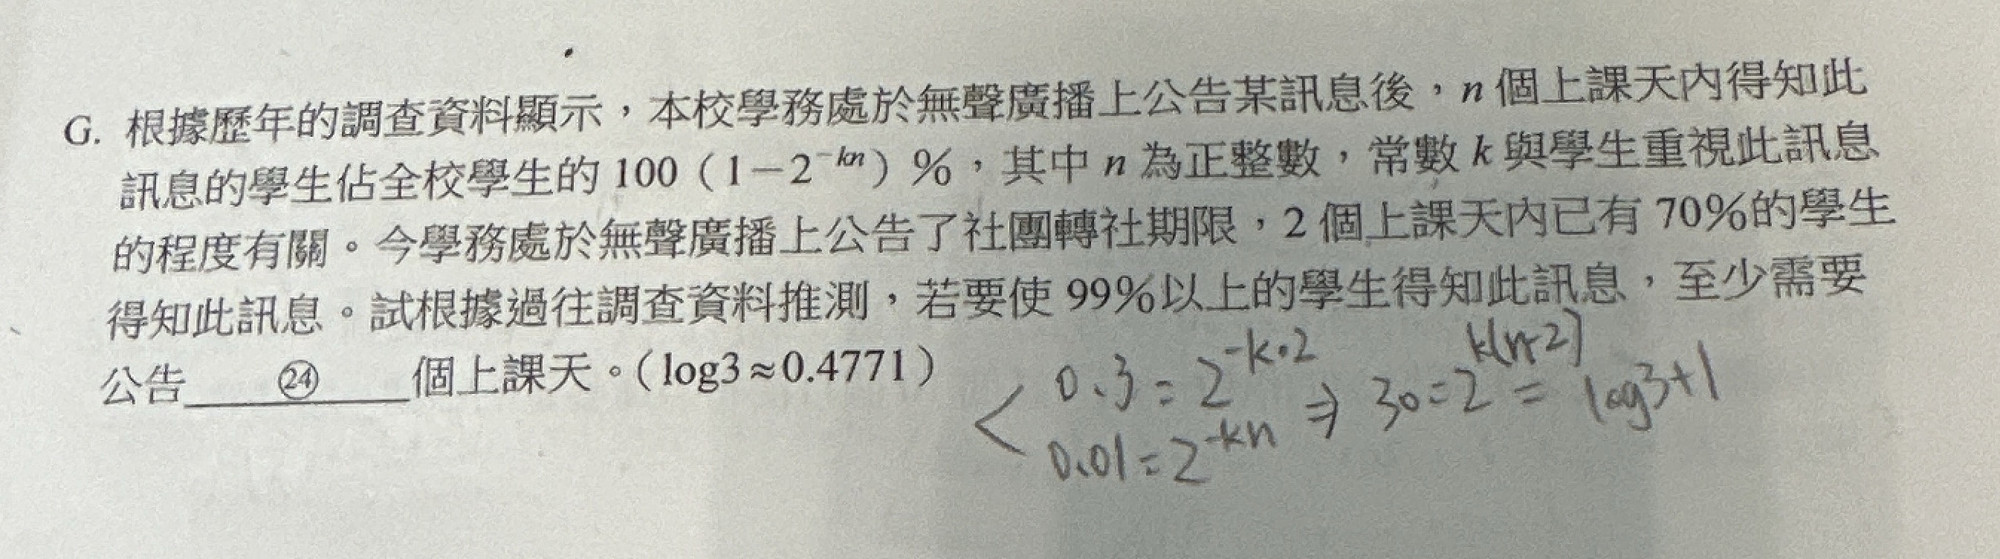 G. 根據歷年的調查資料顯示，本校學務處於無聲廣播上公告某訊息後，n 個上課天內得知此
訊息的學生佔全校學生的 100（1－2^{-kn}）%，其中 n 為正整數，常數 k 與學生重視此訊息
的程度有關。今學務處於無聲廣播上公告了社團轉社期限，2 個上課天內已有 70%的學生
得知此訊息。試根據過往調查資料推測，若要使 99%以上的學生得知此訊息，至少需要
公告 ㉔ 個上課天。（log3≈0.4771）
0.3=2^{-k·2}
0.01=2^{-kn} ⇒ 30=2^{k(n-2)} = log3+1